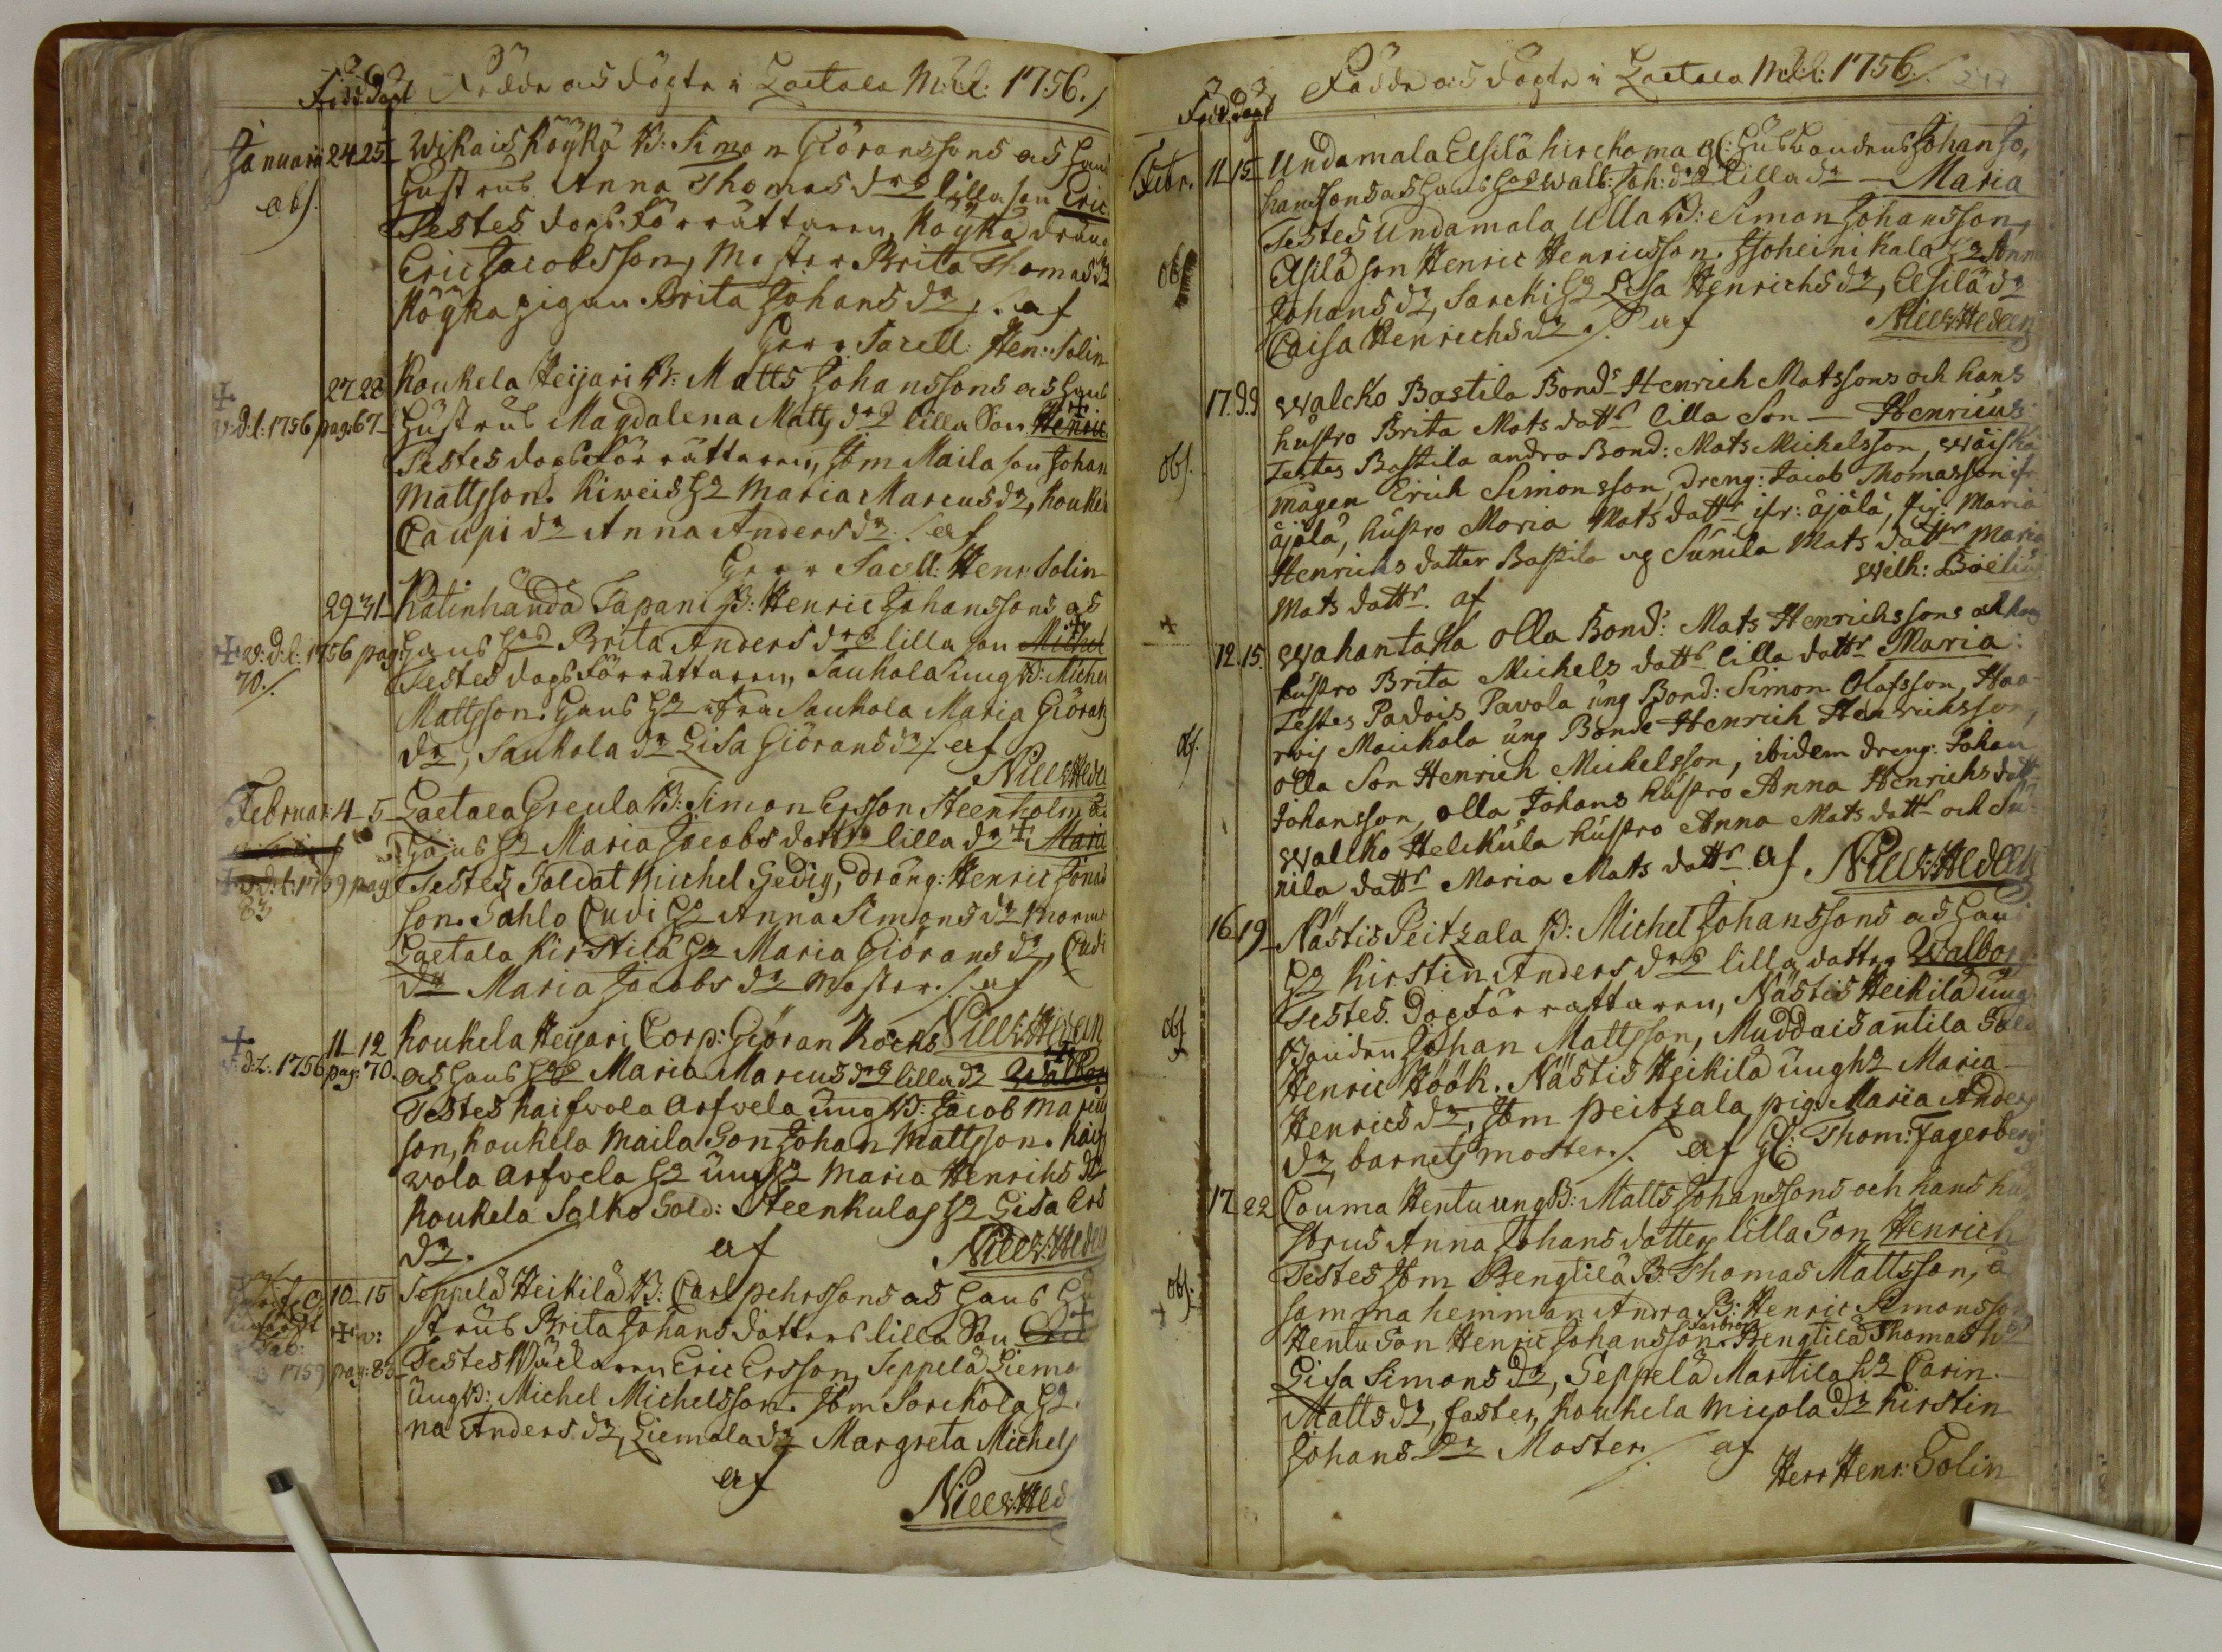 Född. Döpt Födde och Döpte i Laitala M:K:l: 1756./
Januarii 24 25 Wikais Köykä B: Simon Giöranssons och hans
abs. Hustrus Anna Thomas drs lilla son Eric
Testes dops förrättaren, Köykä dräng
Eric Jacobsson, Moster Brita Thomas dr
Köykä pigan Brita Johans dr ./. af
Herr Sacell: Hen: Solin
27 28 Koukela Heijari B: Matts Johanssons och hans
v: d:l: 1756 pag: 67 Hustrus Magdalena Matts drs lilla Son Henric
Testes dops förrättaren, Ibm Maila son Johan
Mattsson. Kiweis H: Maria Marcus dr, Koukela
Caupi dr Anna Anders dr ./. af
Herr Sacell: Henr: Solin
29 31 Katinhändä Tapani B: Henric Johanssons och
v: d:l: 1756 pag: hans H: Brita Anders drs lilla son Michel
70./. Testes dops förrättaren, Saukola ung B: Michel
Mattsson. hans H: ifrån Saukola Maria Giörans
dr, Saukola dr Lisa Giörans dr ./. af
Nills: Hedeen
Februar: 4 5 Laitala Greula B: Simon Ersson Steenholm
hans H: Maria Jacobs dotters lilla dr Maria
v: d:l: 1759 pag: Testes Soldat Michel Gedig, dräng: Henric Jöns
83 son. Sahlo Cudi H: Anna Simons dr mormor
Laitala Kirstilä H: Maria Giörans dr, Cudi
dr Maria Jacobs dr Moster ./. af
Nills: Hedeen
11 12 Koukela Heijari Corp: Giöran Kocks
v: d:l: 1756 pag: 70. och hans H: Maria Marcus drs lilla dr Walborg
Testes Kaifvola Arfvela ung B: Jacob Marcus
son, Koukela Maila Son Johan Mattsson. Kaif
vola Arfvela H: ung H: Maria Henrichs dr
Koukela Salko Sold: Steenkulas H: Lisa Ers
dr. af Nills: Hedeen
10 15 Seppelä Heikilä B: Carl Pehrssons och hans Hu
strus Brita Johans dotters lilla Son Eric
1759 pag: 83 Testes Wäcktaren Eric Ersson, Seppelä Liemo
ung B: Michel Michelsson. Ibm Sorckola H:
na Anders dr, Liemola dr Margreta Michels
af
Nills: Hed
Född. Döpt Födde och Döpte i Laitala M:K:l: 1756./.
Febr. 11 15 Undamala Elsilä hirckoma Gl: Husbondens Johan Jo,
hanssons och hans H: Walb: Joh: drs lilla dr — Maria
Testes Undamala Ulla B: Simon Johansson,
obs. Elsilä son Henric Henricsson. Ihoheini Kala H: Anna
Johans dr, Sarcki H: Lisa Henrichs dr, Elsilä dr
Caisa Henrichs dr ./. af Nills: Hedeen
17. 19 Walcko Bastila Bond: Henrich Matssons och hans
hustro Brita Mats dottrs lilla Son — Henricus
obs. Testes Bastila andra Bond: Mats Michelsson, Wäiskä
mågen Erich Simonsson, Dreng: Jacob Thomasson ifr
äjälä, hustro Maria Mats dottr ifr: äjälä, pig: Maria
Henrichs dotter Bastila og Sunila Mats dottr Maria
Mats dottr. af Wilh: Boelius
12. 15. Wahantaka Olla Bond: Mats Henrichssons och hans
hustro Brita Michels dottrs lilla dottr Maria:
Testes Padois Pavola ung Bond: Simon Olafsson, Haa-
obs. rois Maukola ung Bonde Henrich Henrichsson,
Olla Son Henrich Michelsson, ibidem dreng: Johan
Johansson, Olla Johans hustro Anna Henrichs dott
Wallko Helikula hustro Anna Mats dottr och Su-
nila dottr Maria Mats dottr. af Nills: Hedeen
16 19 Nästis Peitzala B: Michel Johanssons och hans
H: Kirstin Anders drs lilla dotter Walborg
Testes. Dopförrättaren, Nästis Heikilä ung
obs. Bonden Johan Mattsson, Muddais antila Sold
Henric Höök. Nästis Heikilä ung H: Maria
Henrics dr, Ibm Peitzala pig: Maria Anders
dr, barnets moster ./. af Hl: Thom: Fagerberg
17 22 Couma Hentu ung B: Matts Johanssons och hans hu
strus Anna Johans dotters lilla Son Henrich
Testes Ibm Bengtilä B: Thomas Mattsson, å
obs. samma hemman Andra B: Henric Simonsson
Hentu Son Henric Johansson Farbror. Bengtilä Thomas H:
Lisa Simons dr, Seppelä Martila H: Carin
Matts dr, faster, Koukela Micola dr Kirstin
Johans dr Moster ./. af
Herr Henr: Solin